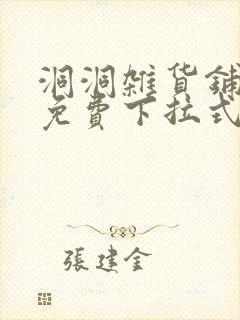 洞洞雜貨鋪
免費下拉式
張建金